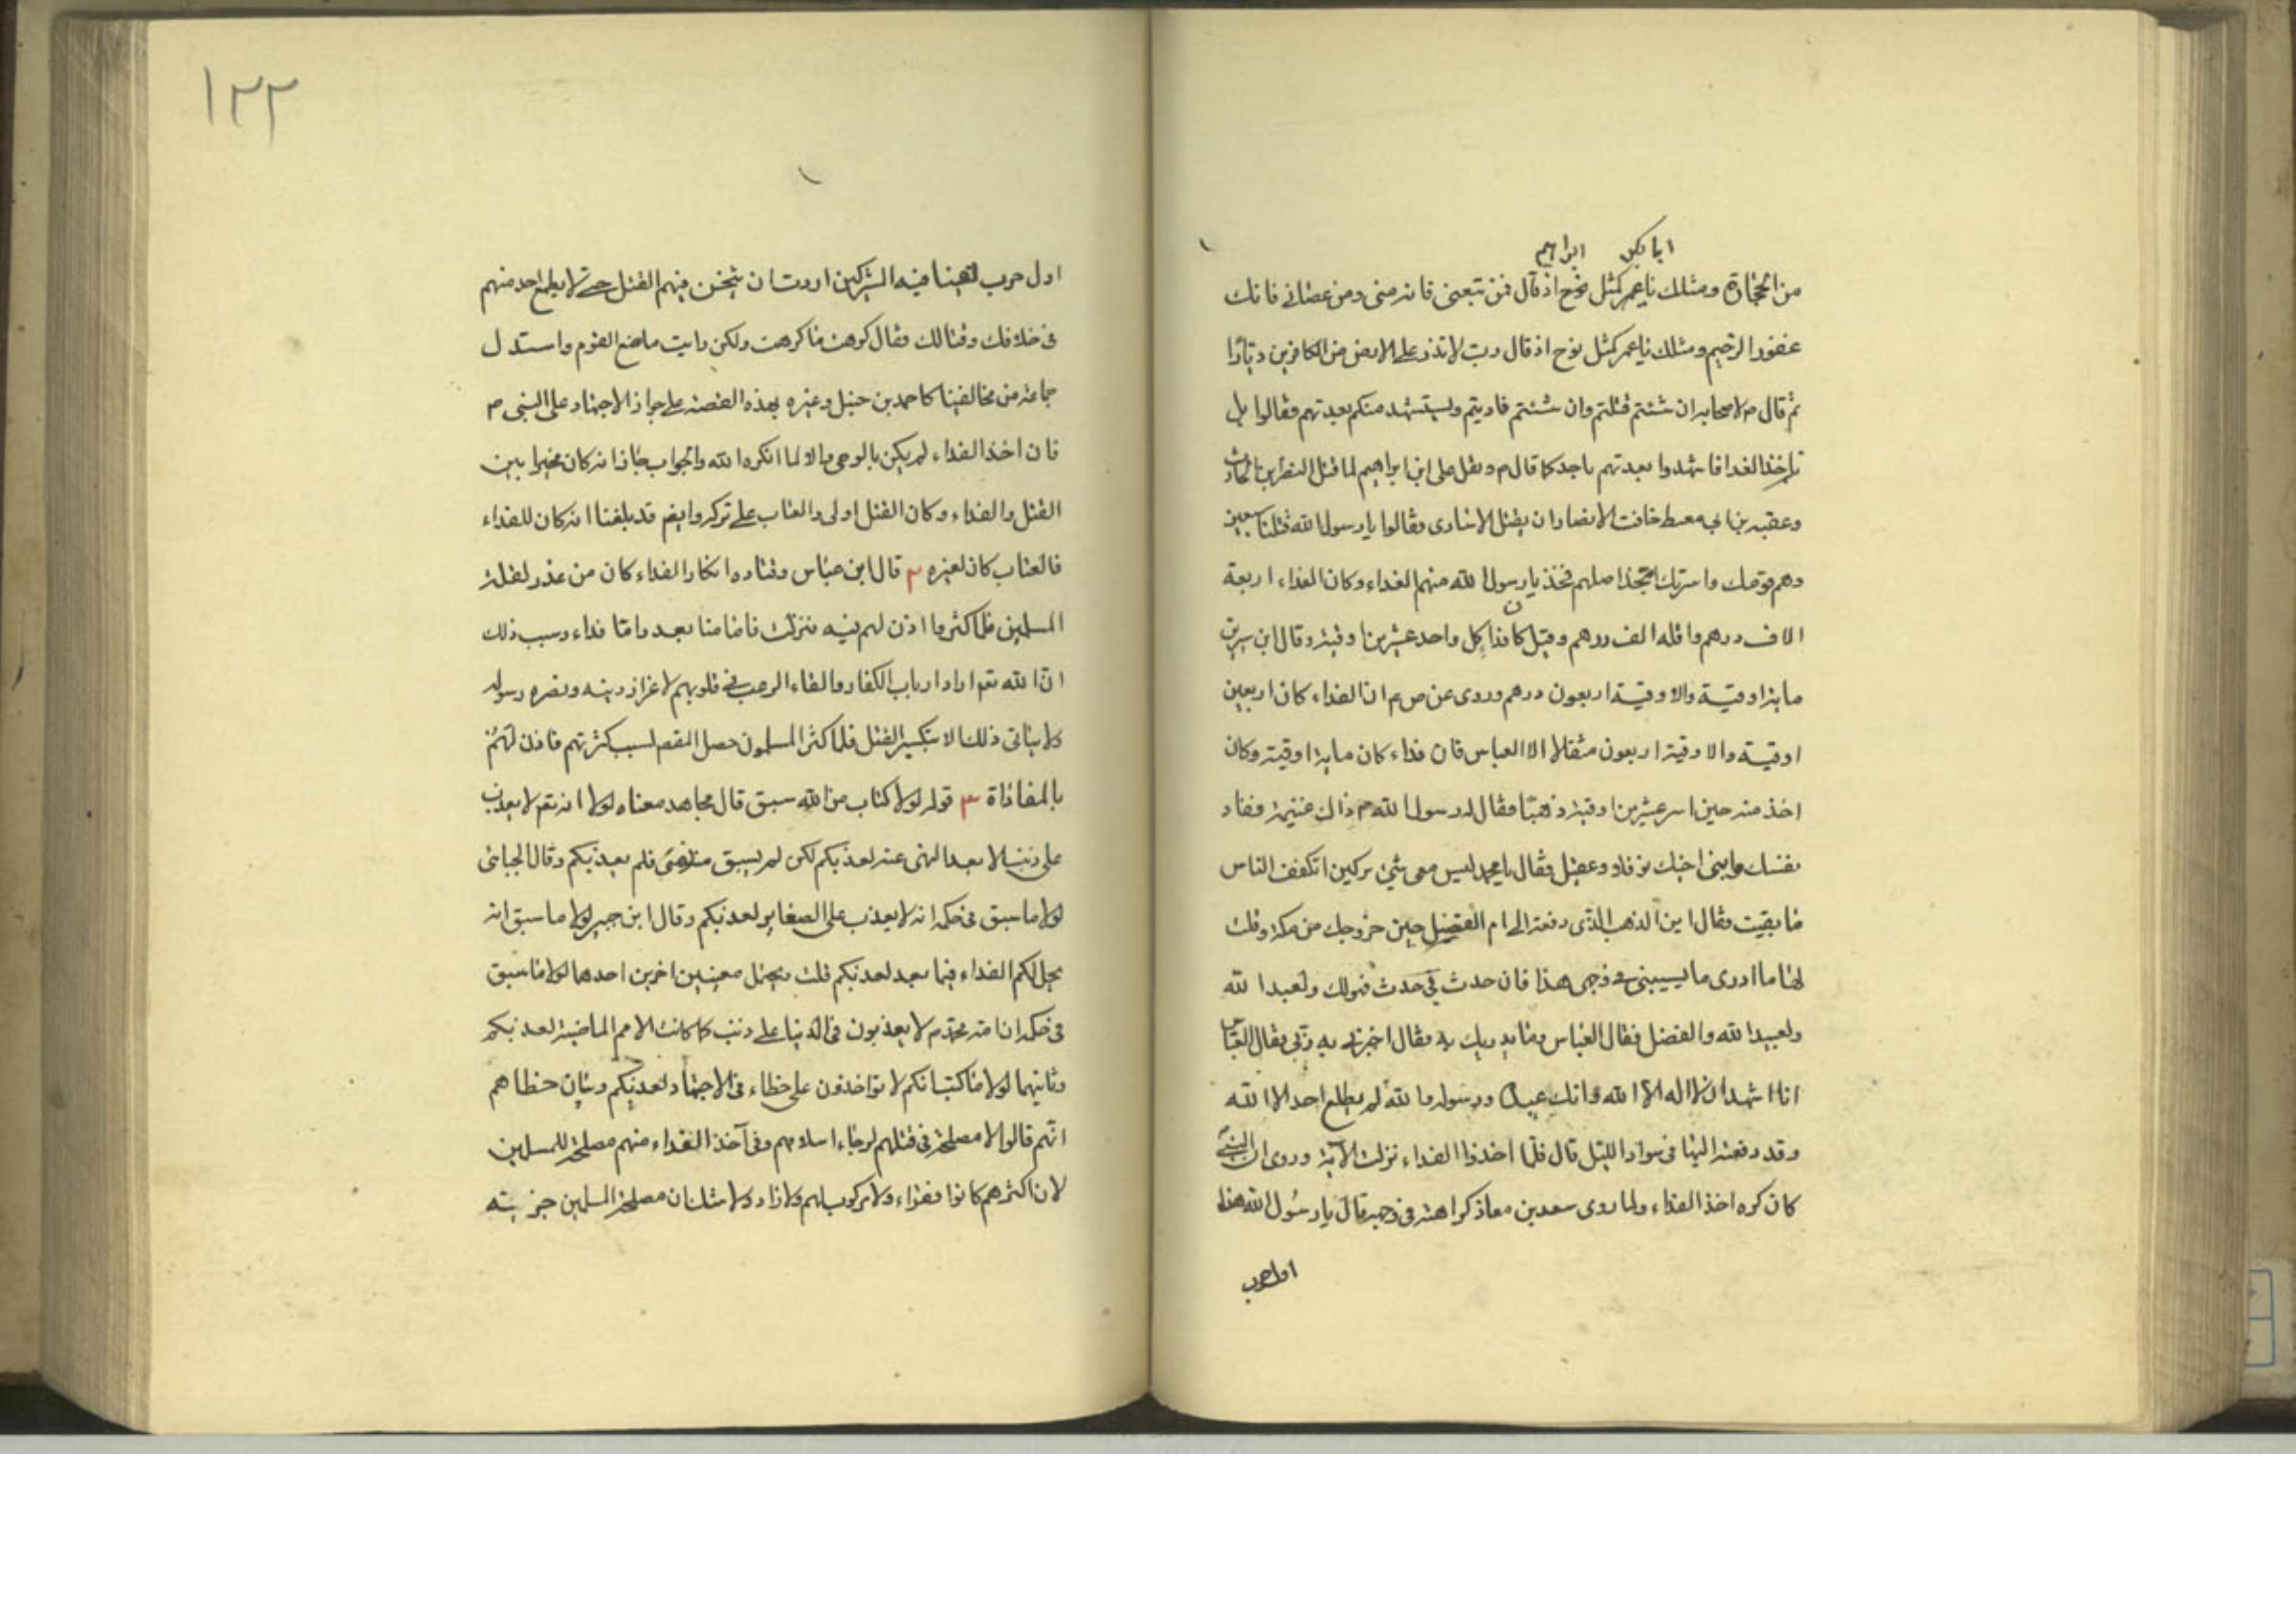 ابابكر ابراهيم
من الحجارة ومثلك يا عمر كمثل نوح اذ قال فمن تبعنى فانه منى ومن عصانى فانك
غفور الرحيم ومثلك يا عمر كمثل نوح اذ قال رب لا تذر على الارض من الكافرين ديارا
ثم قال م لاصحابه ان شئتم قتلتم وان شئتم فاديتم ويستشهد منكم بعدتهم فقالوا بل
ناخذ الفدا فاستشهدوا بعدتهم باحد كما قال م ونقل على ابن ابراهيم لما قتل النضر بن الحارث
وعقبه بن ابى معيط خافت الانصار ان يقتل الاسارى فقالوا يا رسول الله قتلنا سبعين
وهم قومك واسرتك اتجذ اصلهم فخذ يا رسول الله منهم الفداء وكان الفداء اربعة
الاف درهم واقله الف درهم وقيل كان فداء كل واحد عشرين اوقية وقال ابن سيرين
مايه اوقية والاوقية اربعون درهم وروى عن ص م ان الفداء كان اربعين
اوقية والاوقية اربعون مثقالا الا العباس فان فداءه كان مايه اوقية وكان
اخذ منه حين اسر عشرين اوقية ذهبا فقال له رسول الله م ذلك غنيمة ففاد
نفسك وابنى اخيك نوفلا وعقيل فقال يا محمد ليس معى شئ تركتنى اتكفف الناس
ما بقيت فقال اين الذهب الذى دفعته الى ام الفضل حين خروجك من مكة وقلت
لها ما ادرى ما يصيبنى فى وجهى هذا فان حدث بى حدث فهو لك ولعبد الله
ولعبيد الله والفضل فقال العباس وما يدريك به فقال اخبرنى به ربى فقال العباس
انا اشهد ان لا اله الا الله وانك عبده ورسوله والله لم يطلع احد الا الله
وقد دفعته اليها فى سواد الليل قال فلما اخذوا الفداء نزلت الآية وروى ان النبى
كان كره اخذ الفداء ولما روى سعد بن معاذ كراهته فى وجهه قال يا رسول الله هذا
اول حرب
١٢٢
اول حرب لقينا فيه المشركين اردت ان يثخن فيهم القتل حتى لا يطمع احد منهم
فى خلافك وقتالك فقال كرهت ما كرهت ولكن رايت ما صنع القوم واستدل
جماعة من مخالفينا كاحمد بن حنبل وغيره بهذه القصة على جواز الاجتهاد على النبى م
فان اخذ الفداء لم يكن بالوحى والا لما انكره الله والجواب جاز انه كان مخيرا بين
القتل والفداء وكان القتل اولى والعتاب على تركه وايض قد بلغنا انه كان للفداء
فالعتاب كان لغيره ٢ قال ابن عباس وقتاده انكار الفداء كان من عذر لقلة
المسلمين فلما كثروا اذن لهم فيه فنزلت فاما منا بعد واما فداء وسبب ذلك
ان الله تعم اراد ارباب الكفار والقاء الرعب فى قلوبهم لاعزاز دينه ونصره رسوله
ولا يتاتى ذلك الا بتكسير القتل فلما كثر المسلمون حصل المقصد لسبب كثرتهم فاذن لهم
بالمفاداة ٣ قوله لولا كتاب من الله سبق قال مجاهد معناه لولا انه تعم لا يعذب
على ذنب الا بعد النهى عنه لعذبكم لكن لم يسبق منه نهى فلم يعذبكم وقال الجبائى
لولا ما سبق فى حكمه انه لا يعذب على الصغاير لعذبكم وقال ابن جبير لولا ما سبق انه
يحل لكم الفداء فيما بعد لعذبكم قلت يحتمل معنيين اخرين احدهما لولا ما سبق
فى حكمه ان امة محمد م لا يعذبون فى الدنيا على ذنب كما كانت الامم الماضية لعذبكم
وثانيهما لولا ما كتب انكم لا تواخذون على خطاء فى الاجتهاد لعذبكم وبيان خطاهم
انهم قالوا لا مصلحة فى قتلهم لرجاء اسلامهم وفى اخذ الفداء منهم مصلحة للمسلمين
لان اكثرهم كانوا فقراء ولا مركوب لهم ولا زاد ولا شك ان مصلحة المسلمين جزيته